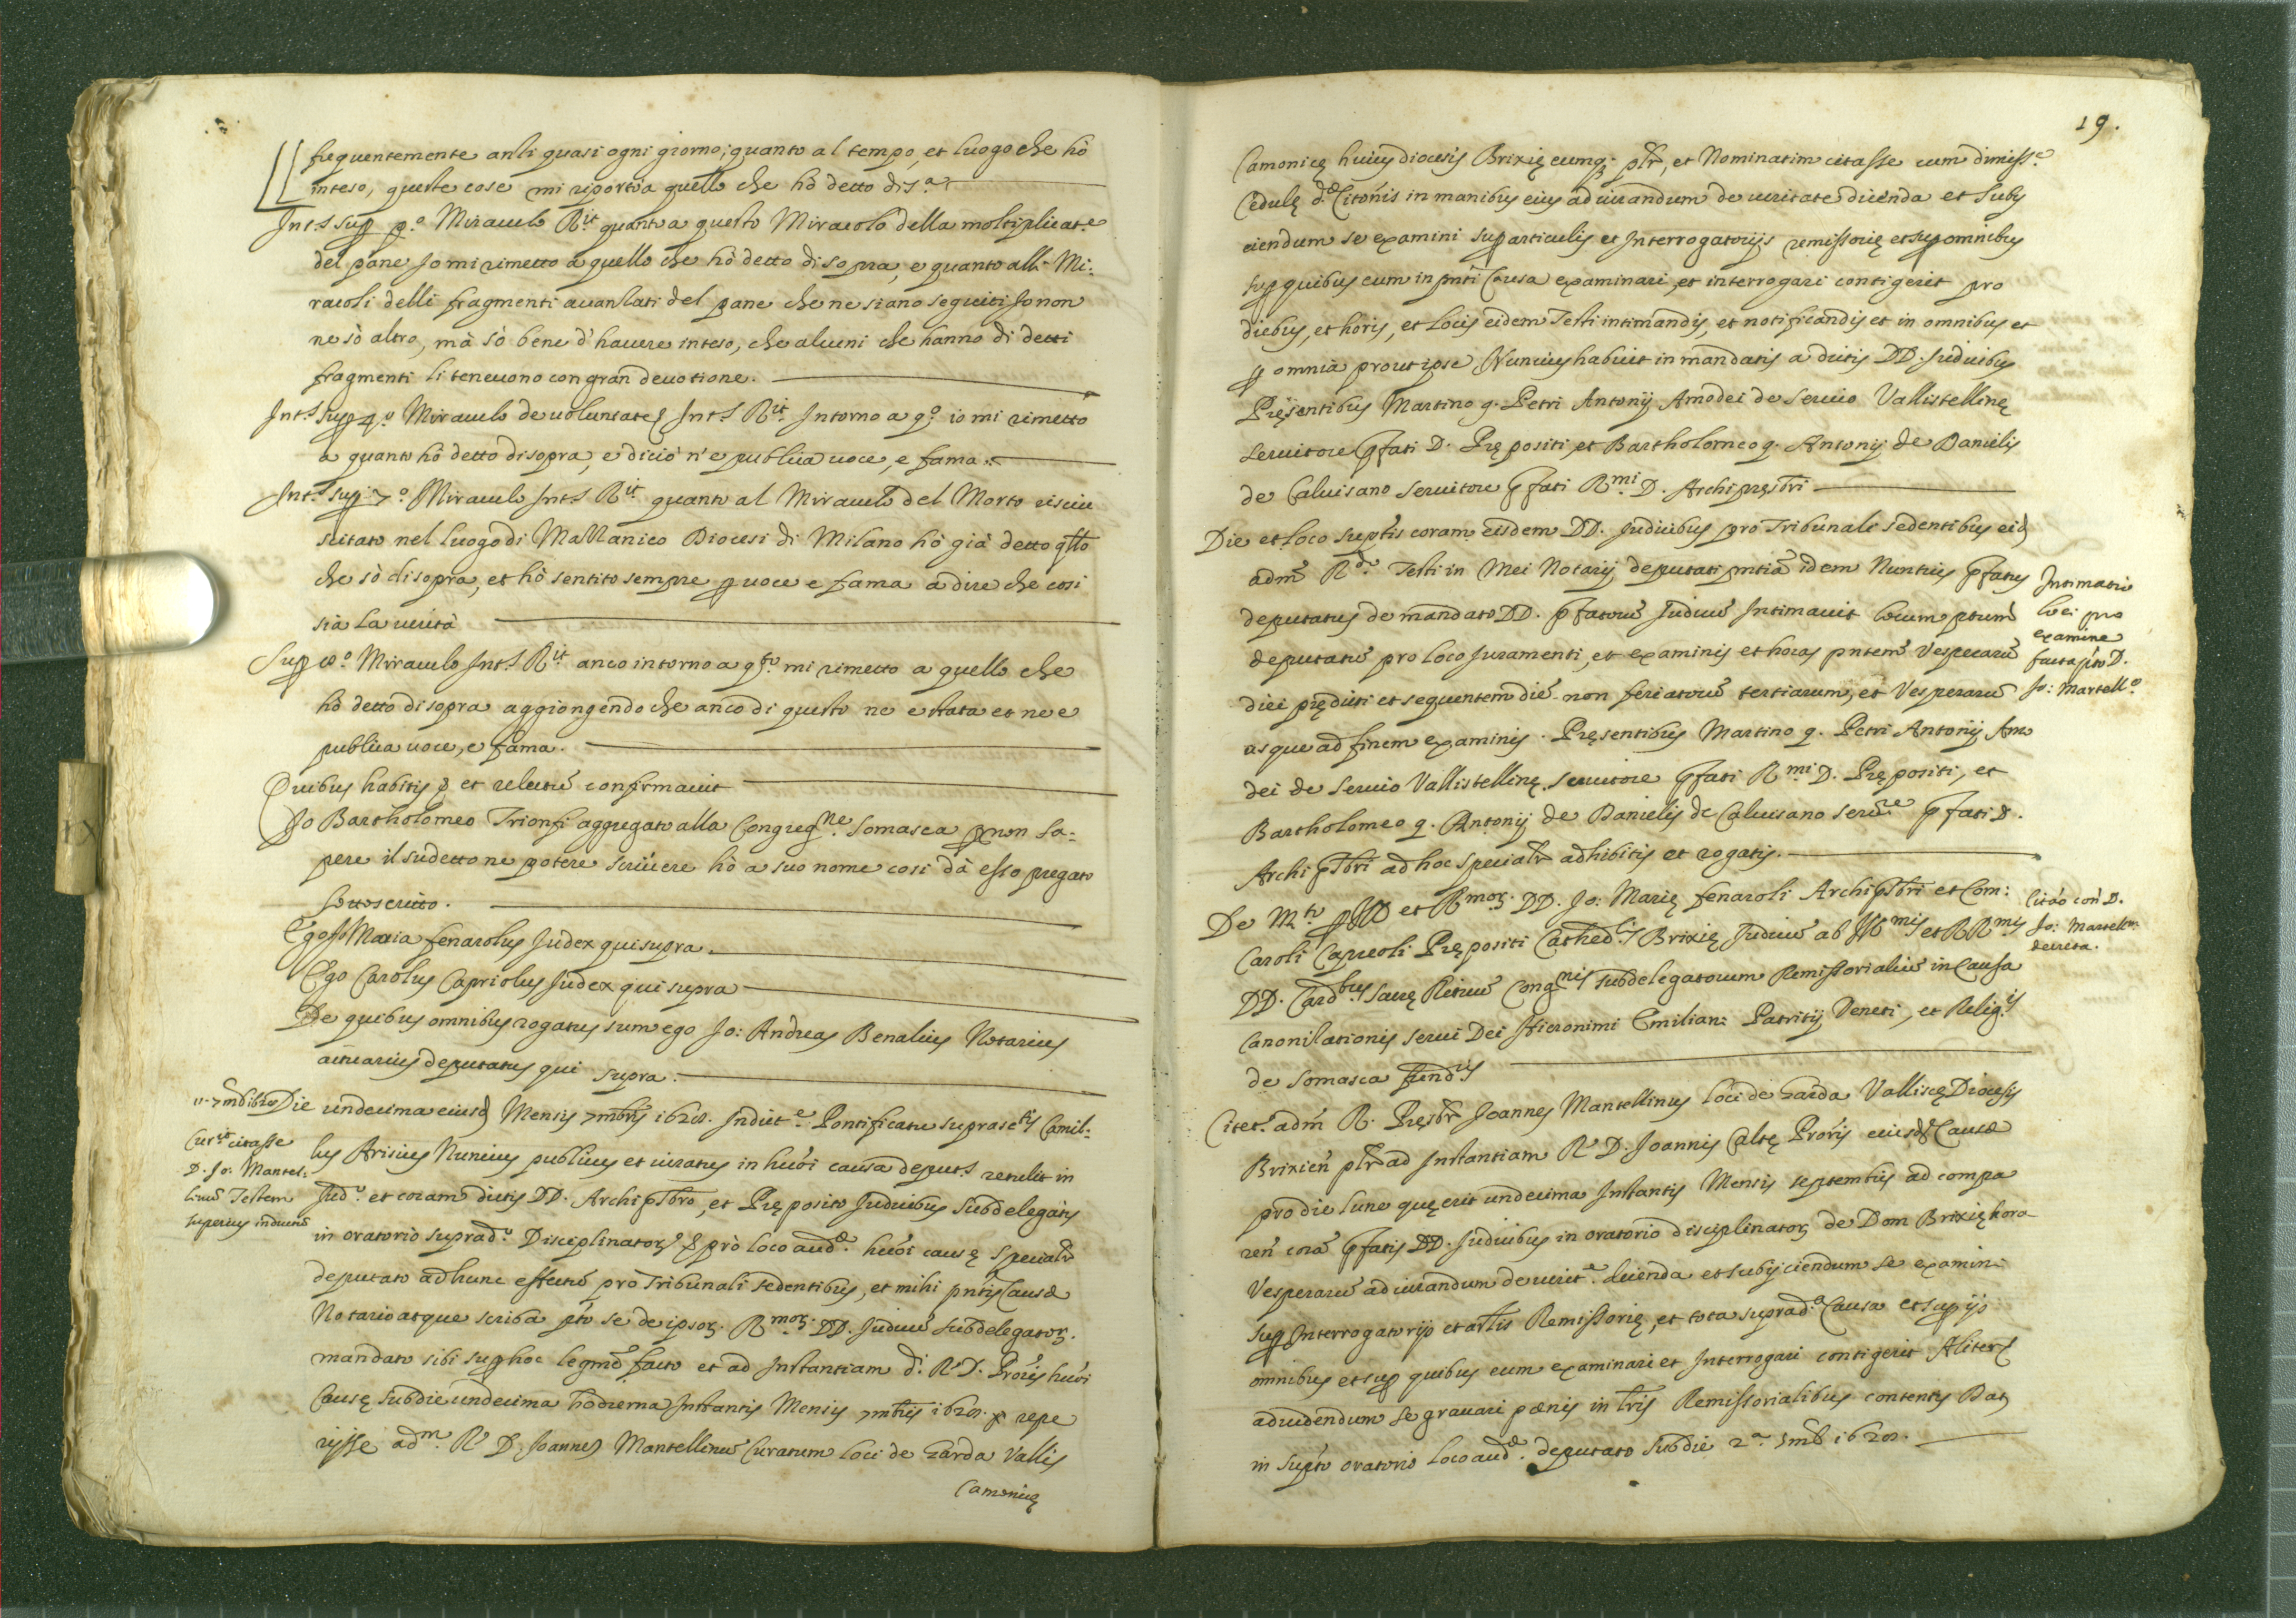 frequentemente anzi quasi ogni giorno; quanto al tempo, et luogo che hò
inteso, queste cose mi riporto a quello che hò detto di s.ª
Int.s sup p.º Miraculo R.it quanto a questo Miracolo della moltiplicat.e
del pane Io mi rimetto a quello che hò detto di sopra, e quanto alli Mi:
racoli delli fragmenti avanzati del pane che ne siano seguiti Io non
ne sò altro, mà sò bene d'havere inteso, che alcuni che hanno di detti
fragmenti li tenevono con gran devotione.
Int.s sup 4.º Miraculo de voluntate Int.s R.it Intorno a q.º io mi rimetto
a quanto hò detto di sopra, e di ciò n'e publica voce, e fama.
Int.s sup 7.º Miraculo Int.s R.it quanto al Miraculo del Morto risciu
scitato nel luogo di Mazzanico Diocesi di Milano hò già detto qllo
che sò di sopra, et hò sentito sempre p voce e fama a dire che cosi
sia la verità
Sup 8.º Miraculo Int.s R.it anco intorno a q.to mi rimetto a quello che
hò detto di sopra aggiongendo che anco di questo ne e stata et ne e
publica voce, e fama.
Quibus habitis et relectũ confirmavit
Io Bartholomeo Trionfi aggregato alla Congreg.ne Somasca p non sa:
pere il sudetto ne potere scrivere hò a suo nome cosi dà esso pregato
sottoscritto.
Ego Jo Maria fenarolus Judex qui supra.
Ego Carolus Capriolus Judex qui supra
De quibus omnibus rogatus sum ego Jo: Andreas Benalius Notarius
actuarius deputatus qui supra.
11. 7mbris 1628
Die undecima eiusd Mensis 7mbris 1628. Indict.e Pontificatu suprasc.tis Camil:
Cur.m citasse
D. Jo: Mantel:
linũ Testem
superius inductũ
lus Arisius Nuncius publicus et iuratus in huiõi causa deput.s retulit in
Iud.º et coram dictis DD. Archipsbro, et Pręposito Iudicibus Subdelegatis
in oratorio suprad.º Disciplinatorȝ pro loco aud.ę huiõi causę specialr
deputato ad hunc effectũ pro Tribunali sedentibus, et mihi pntis Causæ
Notario atque scriba pto se de ipsorȝ R.morȝ DD. Iudicũ Subdelegatorȝ
mandato sibi sup hoc legmẽ facto et ad Instantiam d.i R.D. Proris huiõi
Causę sub die undecima hodierna Instantis Mensis 7mbris 1628. repe
rijsse adm. R. D. Joannẽ Mantellinũ Curatum loci de Zarda Vallis
Camonicę
19.
Camonicę huius diocesis Brixię eumq; plr, et Nominatim citasse cum dimiss.e
Cedulę d.ę Citonis in manibus eius ad iurandum de veritate dicenda et Subij
ciendum se examini sup articulis et Interrogatorijs remissorię et sup omnibus
sup quibus eum in pnti Causa examinari, et interrogari contigerit pro
diebus, et horis, et locis eidem Testi intimandis, et notificandis et in omnibus et
p omnia prout ipse Nuncius habuit in mandatis a dictis DD. Iudicibus
Pręsentibus Martino q. Petri Antonij Amodei de Servio Vallistellinę
servitore pfati D. Prępositi, et Bartholomeo q. Antonij de Danielis
de Calvisano servitore pfati R.mi D. Archipręsbri
Die et loco suptis coram eisdem DD. Iudicibus pro Tribunali sedentibus eid
adm R.do Testi in Mei Notarij deputati pntia idem Nuntius pfatus
deputatus de mandato DD. pfatorũ Iudicũ Intimavit locum ptum
deputatũ pro loco Iuramenti, et examinis et horas pntem Vesperarũ
diei prędicti et sequentem diẽ non feriatorũ tertiarum, et Vesperarũ
usque ad finem examinis. Pręsentibus Martino q. Petri Antonij Amo
dei de Servio Vallistellinę servitore pfati R.mi D. Prępositi, et
Bartholomeo q. Antonij de Danielis de Calvisano serv.re pfati D.
Archipsbri ad hoc specialr adhibitis et rogatis.
Intimatio
loci pro
examine
facta pto D.
Jo: Martell.º
De M.to p Ill et R.morȝ DD. Jo: Marię fenaroli Archipsbri et Com:
Caroli Capreoli Prępositi Cathed.lis Brixię Iudicũ ab Ill.mis et RR.mis
DD. Card.bus sacrę Rituũ Cong.nis subdelegatorum Remissorialiũ in Causa
Canonizationis servi Dei Hieronimi Emiliani Patritij Veneti, et Relig.is
de Somasca fund.ris
Citão con D.
Jo: Martellin:
decreta.
Citet.r adm R. Pręsbr Joannes Mantellinus loci de Zarda Vallis Diocesis
Brixien plr ad Instantiam R. D. Joannis Caltę Proris eiusd Causæ
pro die lune quę erit undecima Instantis Mensis septembris ad compa
ren corã pfatis DD. Iudicibus in oratorio disciplinatorȝ de Dom Brixię hora
Vesperarũ ad iurandum de verit.e dicenda et subijciendum se examini
sup Interrogatorijs et artlis Remissorię, et tota suprad.a Causa et sup ijs
omnibus et sup quibus eum examinari et Interrogari contigerit Aliter
ad videndum se gravari pœnis in lris Remissorialibus contentis Dat
in supto oratorio loco aud.ę deputato sub die 2.ª 7mb 1628.